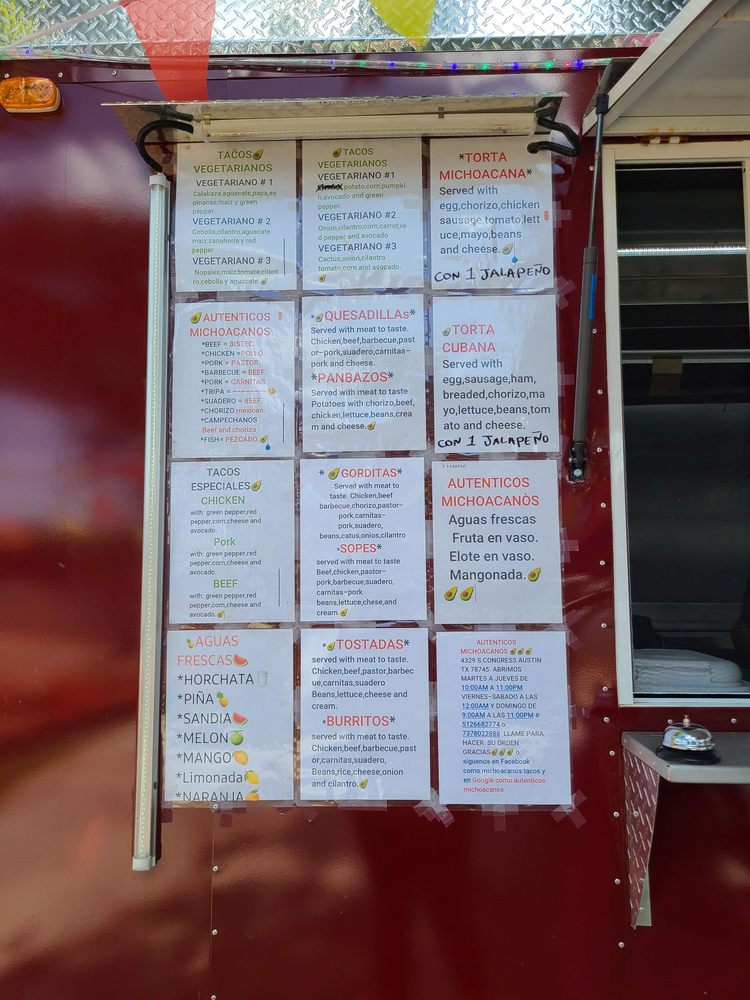 TACOS🥑
VEGETARIANOS
VEGETARIANO # 1
Calabaza,aguacate,papa,es
pinacas,maiz y green
pepper.
VEGETARIANO # 2
Cebolla,cilantro,aguacate
maiz,zanahoria y red
pepper
VEGETARIANO # 3
Nopales,maiz,tomate,cilant
ro,cebolla y aguacate.🥑
🥑TACOS
VEGETARIANOS
VEGETARIANO #1
,potato,corn,pumpki
n,avocado and green
pepper.
VEGETARIANO #2
Onion,cilantro,corn,carrot,re
d pepper and avocado
VEGETARIANO #3
Cactus,onion,cilantro
tomato,corn and avocado.
🥑
*TORTA
MICHOACANA*
Served with
egg,chorizo,chicken
sausage,tomato,lett
uce,mayo,beans
and cheese.🥑
CON 1 JALAPEÑO
🥑AUTENTICOS
MICHOACANOS
*BEEF = BISTEC.
*CHICKEN =POLLO.
*PORK = PASTOR.
*BARBECUE = BEEF.
*PORK = CARNITAS.
*TRIPA = ----------🥑
*SUADERO = BEEF.
*CHORIZO mexican.
*CAMPECHANOS
Beef and chorizo
*FISH= PEZCADO.🥑
*🥑QUESADILLAs*
Served with meat to taste.
Chicken,beef,barbecue,past
or–pork,suadero,carnitas–
pork and cheese.
*PANBAZOS*
Served with meat to taste
Potatoes with chorizo,beef,
chicken,lettuce,beans,crea
m and cheese.🥑
🥑TORTA
CUBANA
Served with
egg,sausage,ham,
breaded,chorizo,ma
yo,lettuce,beans,tom
ato and cheese.
CON 1 JALAPEÑO
TACOS
ESPECIALES🥑
CHICKEN
with: green pepper,red
pepper,corn,cheese and
avocado.
Pork
with: green pepper,red
pepper,corn,cheese and
avocado.
BEEF
with: green pepper,red
pepper,corn,cheese and
avocado.🥑
*🥑GORDITAS*
Served with meat to
taste. Chicken,beef
barbecue,chorizo,pastor–
pork,carnitas–
pork,suadero,
beans,catus,onios,cilantro
*SOPES*
served with meat to taste
Beef,chicken,pastor–
pork,barbecue,suadero,
carnitas–pork
beans,lettuce,chese,and
cream.🥑
Titulo
AUTENTICOS
MICHOACANÒS
Aguas frescas
Fruta en vaso.
Elote en vaso.
Mangonada.🥑
🥑🥑
🍍AGUAS
FRESCAS🍉
*HORCHATA🥛
*PIÑA🍍
*SANDIA🍉
*MELON🍈
*MANGO🥭
*Limonada🍋
*NARANJA🍊
*🥑TOSTADAS*
served with meat to taste.
Chicken,beef,pastor,barbec
ue,carnitas,suadero
Beans,lettuce,cheese and
cream.
*BURRITOS*
served with meat to taste.
Chicken,beef,barbecue,past
or,carnitas,suadero,
Beans,rice,cheese,onion
and cilantro.🥑
AUTENTICOS
MICHOACANOS 🥑🥑🥑
4329 S CONGRESS AUSTIN
TX 78745. ABRIMOS
MARTES A JUEVES DE
10:00AM A 11:00PM
VIERNES–SABADO A LAS
12:00AM Y DOMINGO DE
9:00AM A LAS 11:00PM #
5126682774 o
7378022888 LLAME PARA
HACER SU ORDEN
GRACIAS🥑🥑🥑 o
siguenos en Facebook
como michoacanos tacos y
en Google como autenticos
michoacanos